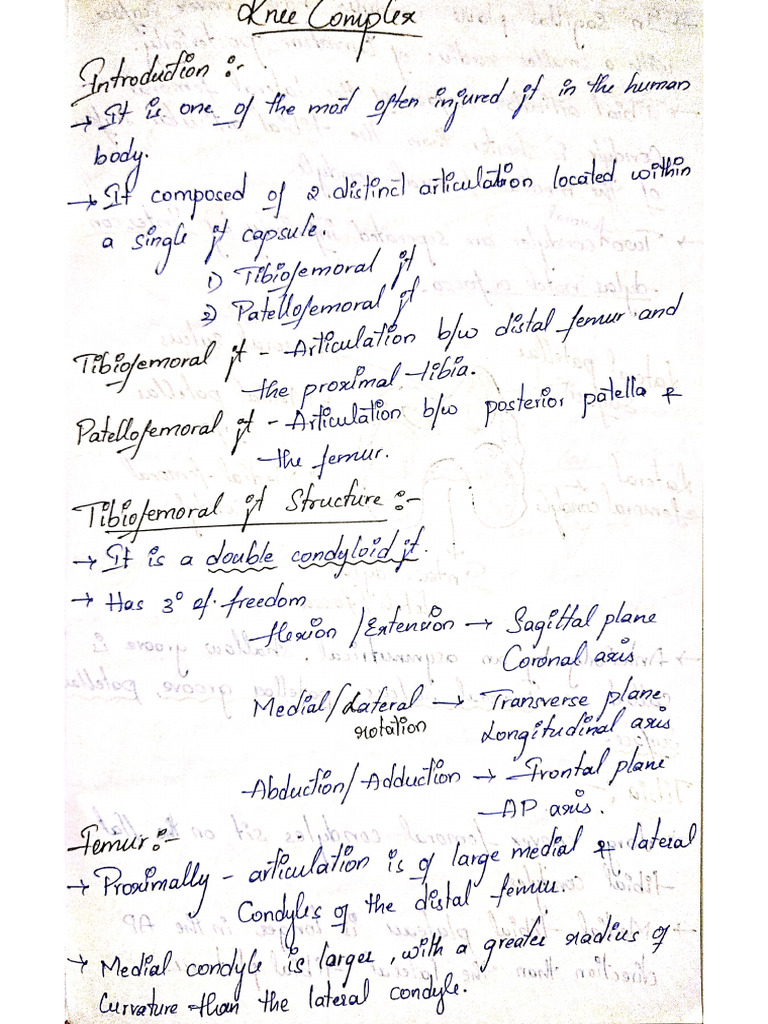 Knee Complex
Introduction :-
→ It is one of the most often injured jt in the human
body.
→ It composed of 2 distinct articulation located within
a single jt capsule.
1) Tibiofemoral jt
2) Patellofemoral jt
Tibiofemoral jt - Articulation b/w distal femur and
the proximal tibia.
Patellofemoral jt - Articulation b/w posterior patella &
the femur.
Tibiofemoral jt Structure :-
→ It is a double condyloid jt.
→ Has 3° of freedom
flexion / Extension → Sagittal plane
Coronal axis
Medial / Lateral → Transverse plane
rotation Longitudinal axis
Abduction / Adduction → Frontal plane
AP axis.
Femur :-
→ Proximally - articulation is of large medial & lateral
Condyles of the distal femur.
→ Medial condyle is larger, with a greater radius of
Curvature than the lateral condyle.